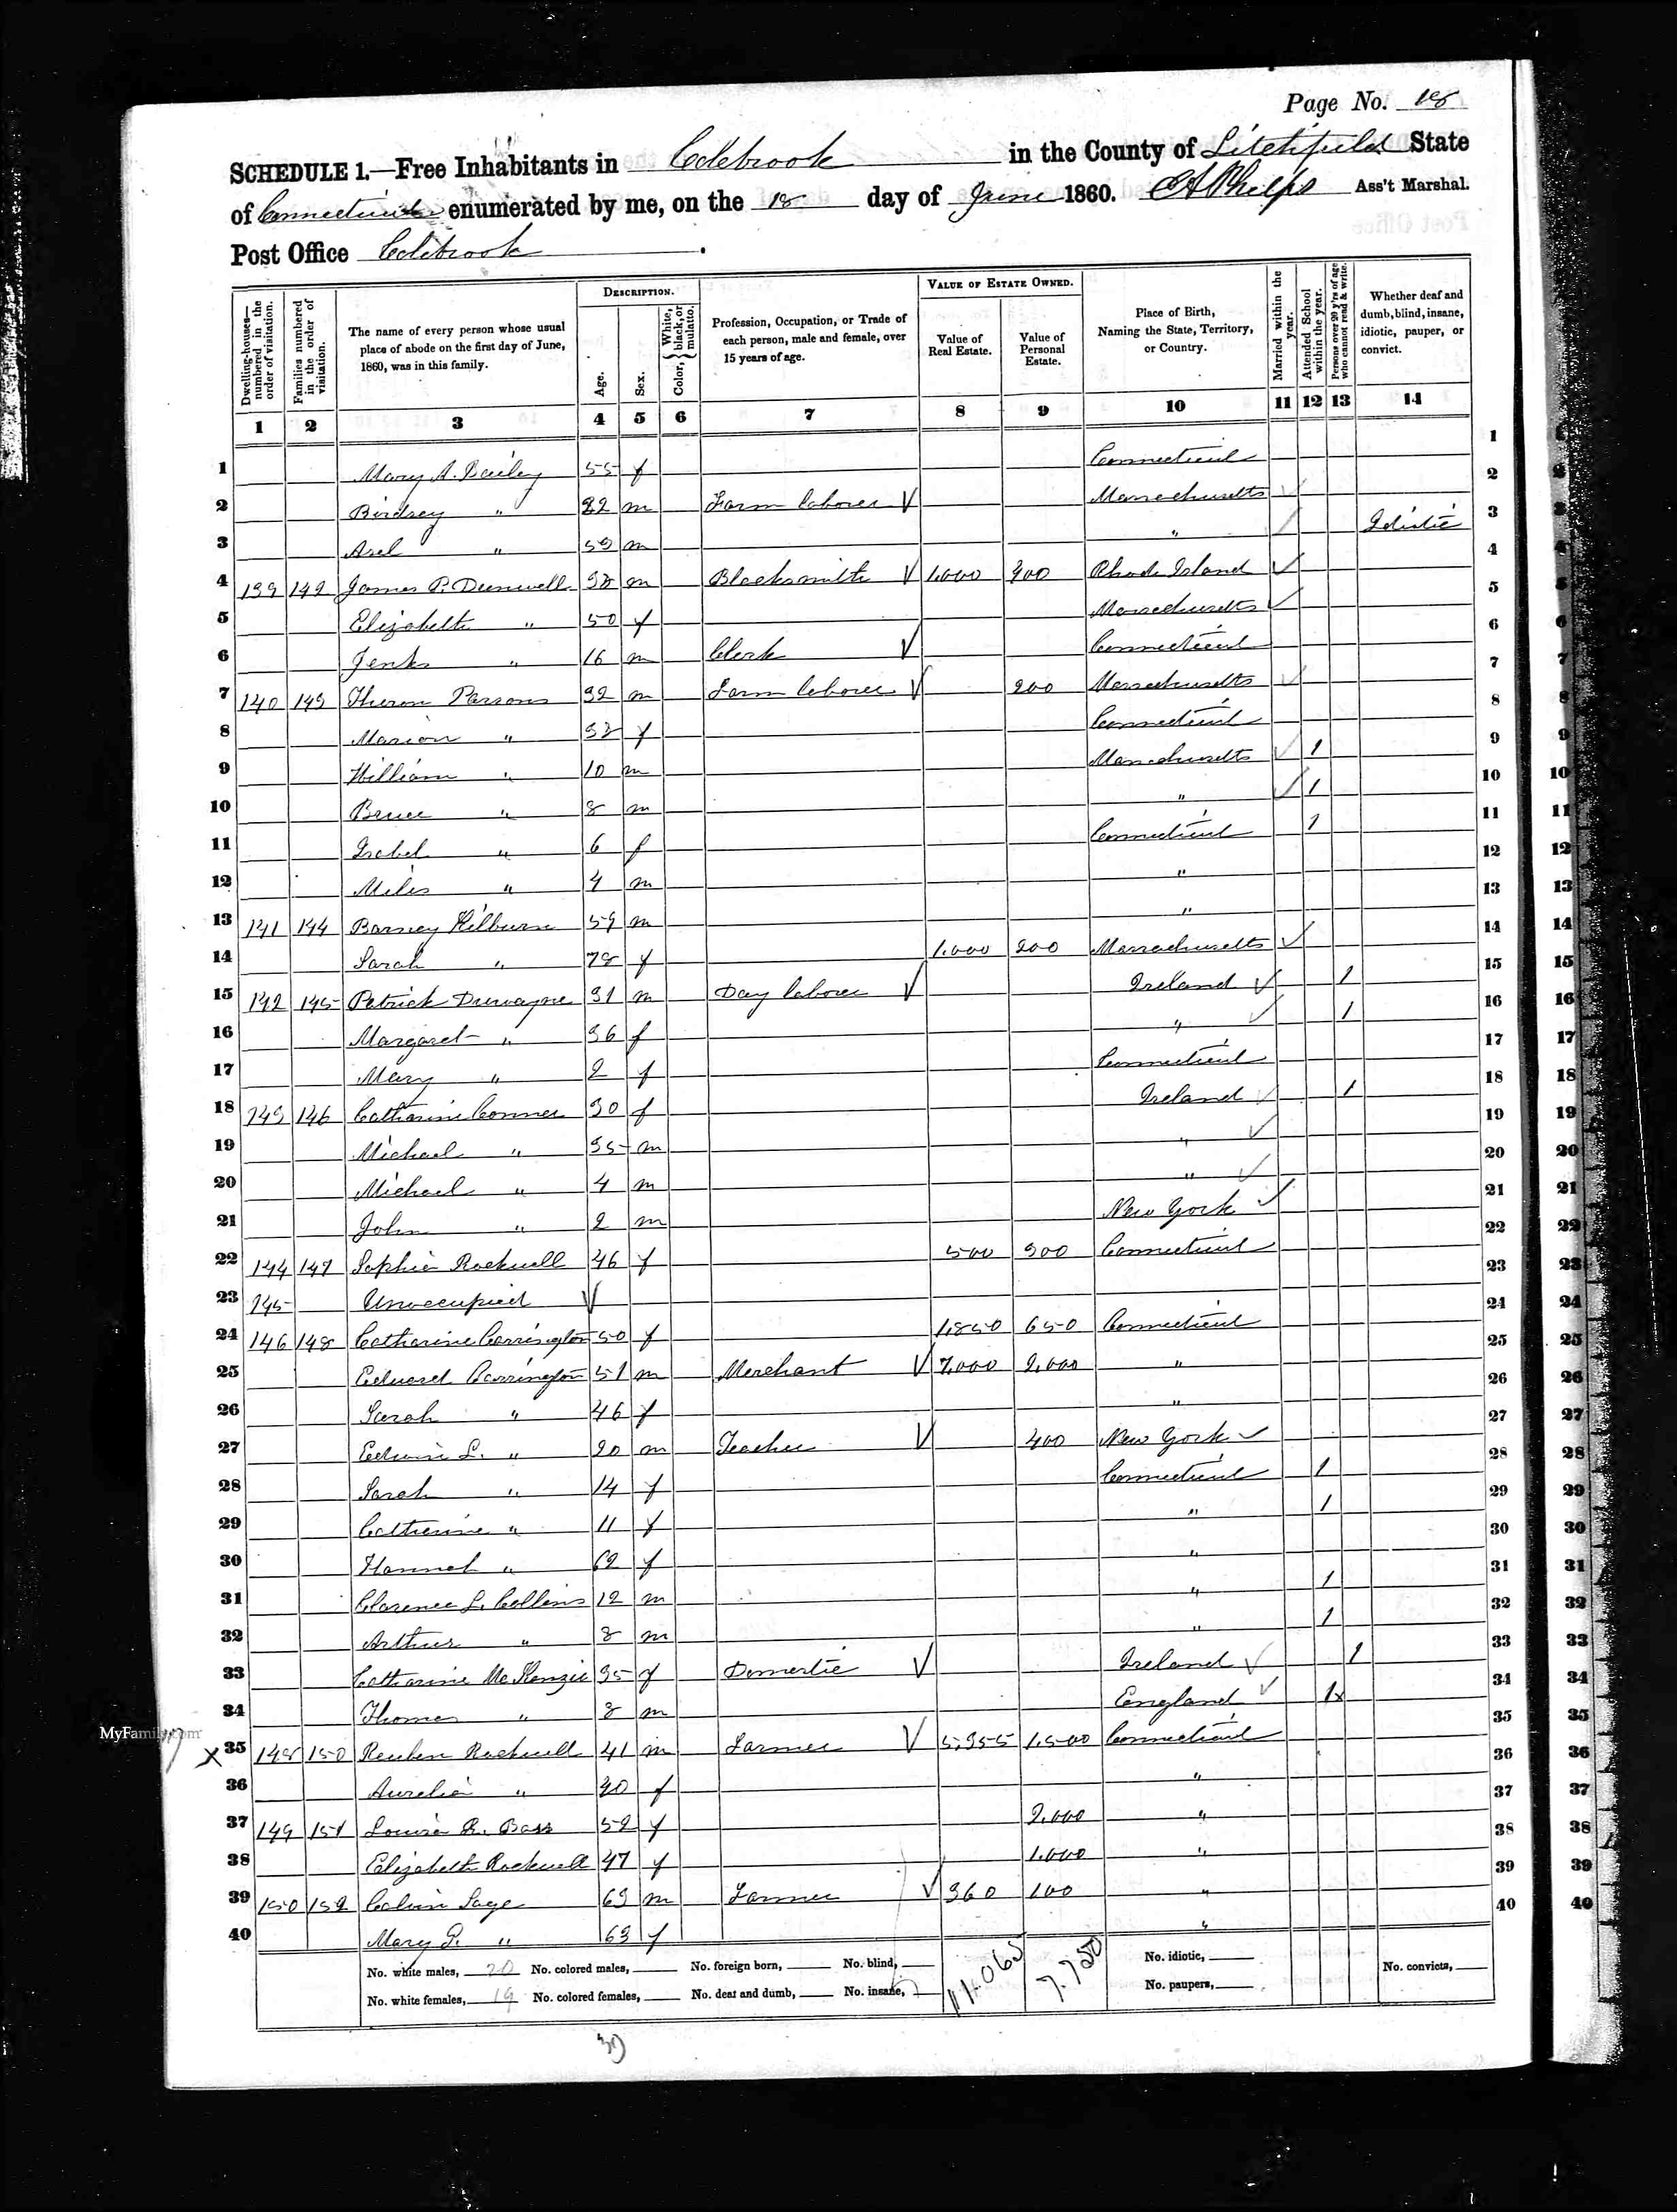 Page No. 18
SCHEDULE 1.—Free Inhabitants in Colebrook in the County of Litchfield State
of Connecticut enumerated by me, on the 18 day of June 1860. E A Phelps Ass't Marshal.
Post Office Colebrook.
Dwelling-houses—numbered in the order of visitation. Families numbered in the order of visitation. The name of every person whose usual place of abode on the first day of June, 1860, was in this family. DESCRIPTION. Age. Sex. Color, White, black, or mulatto. Profession, Occupation, or Trade of each person, male and female, over 15 years of age. VALUE OF ESTATE OWNED. Value of Real Estate. Value of Personal Estate. Place of Birth, Naming the State, Territory, or Country. Married within the year. Attended School within the year. Persons over 20 y'rs of age who cannot read & write. Whether deaf and dumb, blind, insane, idiotic, pauper, or convict.
1 2 3 4 5 6 7 8 9 10 11 12 13 14
1 Mary A. Bailey 55 f Connecticut 1
2 Birdsey " 22 m Farm laborer Massachusetts 2
3 Asel " 59 m " Idiotic 3
4 139 142 James P. Dunwell m Blacksmith 1.000 300 Rhode Island 4
5 Elizabeth " 50 f Massachusetts 5
6 Jenks " 16 m Clerk Connecticut 6
7 140 143 Theron Parsons 32 m Farm laborer 200 Massachusetts 7
8 Marion " 33 f Connecticut 8
9 William " 10 m Massachusetts 1 9
10 Bruce " 8 m " 1 10
11 Isabel " 6 f Connecticut 1 11
12 Miles " 4 m " 12
13 141 144 Barney Kilburn 59 m " 13
14 Sarah " 78 f 1.000 200 Massachusetts 14
15 142 145 Patrick 31 m Day laborer Ireland 1 15
16 Margaret " 36 f " 1 16
17 Mary " 2 f Connecticut 17
18 143 146 Catharine Conner 30 f Ireland 1 18
19 Michael " 35 m " 19
20 Michael " 4 m " 20
21 John " 2 m New York 21
22 144 147 Sophia Rockwell 46 f 500 300 Connecticut 22
23 145 Unoccupied 23
24 146 148 Catharine Carrington 50 f 1.850 650 Connecticut 24
25 Edward Carrington 51 m Merchant 2.000 " 25
26 Sarah " 46 f " 26
27 Edwin L. " 20 m Teacher 400 New York 27
28 Sarah " 14 f Connecticut 1 28
29 Catherine " 11 f " 1 29
30 Hannah " 62 f " 30
31 Clarence L. Collins 12 m " 1 31
32 Arthur " 8 m " 1 32
33 Catharine McKenzie 35 f Domestic Ireland 1 33
34 Thomas " 8 m England 1x 34
x 35 148 150 Reuben Rockwell 41 m Farmer 5.355 1.500 Connecticut 35
36 Aurelia " f " 36
37 149 151 Louisa R. Bass 52 f 2.000 " 37
38 Elizabeth Rockwell 47 f 1.000 " 38
39 150 152 Calvin Sage 63 m Farmer 360 100 " 39
40 Mary G. " 63 f " 40
No. white males, 20 No. colored males, No. foreign born, No. blind, No. idiotic, No. convicts,
No. white females, 19 No. colored females, No. deaf and dumb, No. insane, No. paupers,
7.750
39
MyFamily.com